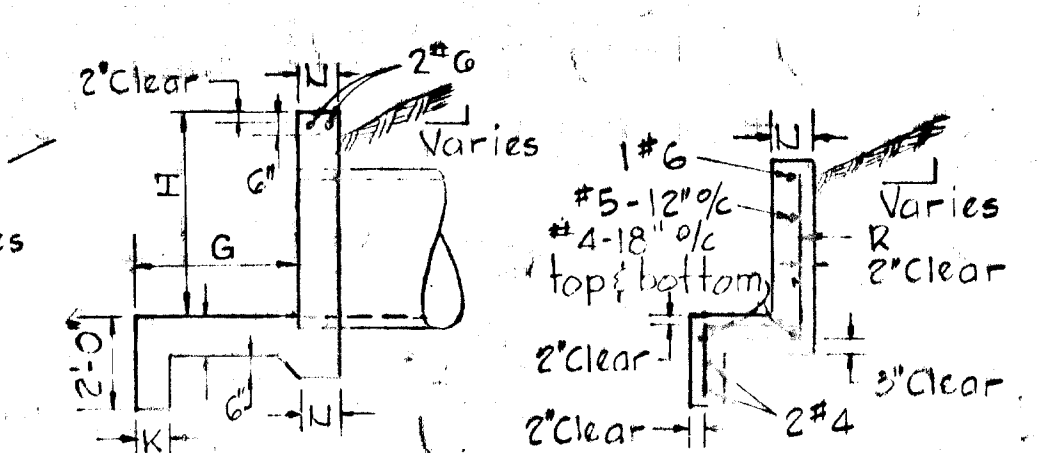 2"Clear
N
2#6
Varies
H
6"
G
2'-0
6"
K
N
es
N
1#6
#5-12" o/c
#4-18" o/c
top & bottom
Varies
R
2"Clear
2"Clear
3"Clear
2"Clear
2#4